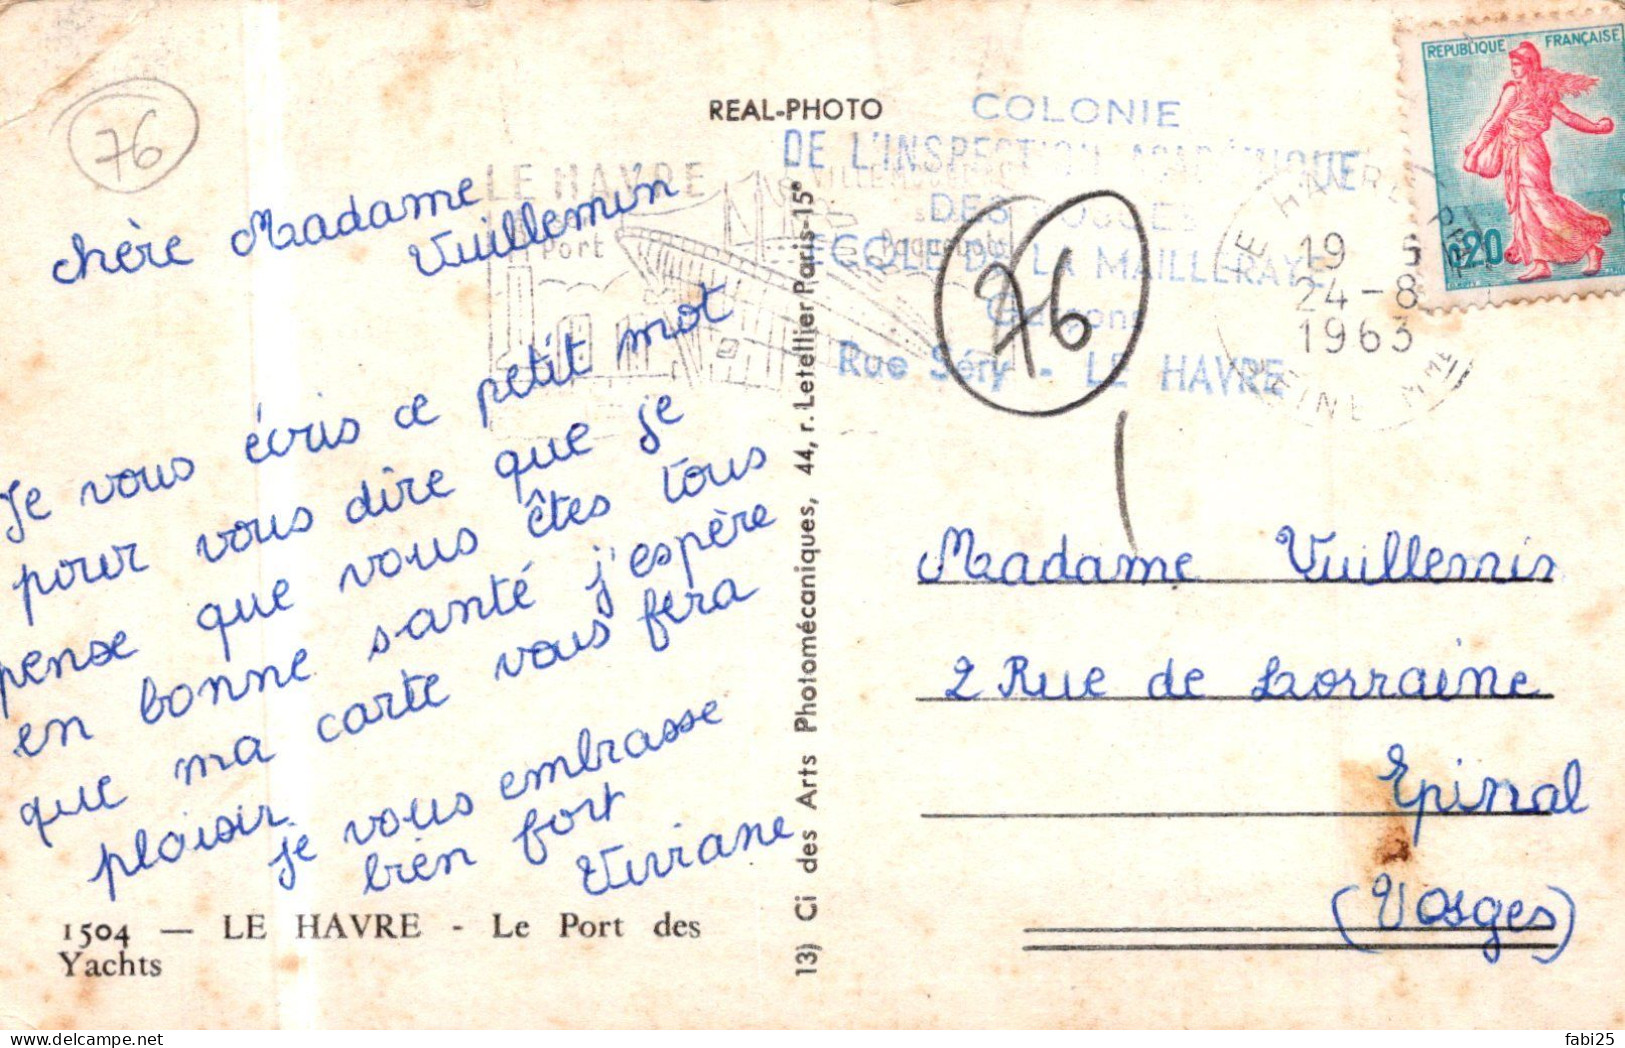 76
REAL-PHOTO
COLONIE
DE L'INSPECTION ACADÉMIQUE
DES VOSGES
ECOLE DE LA MAILLERAYE
Garçons
Rue Séry - LE HAVRE
LE HAVRE
Port
Paquebots
REPUBLIQUE FRANÇAISE
0,20
LE HAVRE PPAL
19
24-8
1963
SEINE MME
76
chère Madame
Vuillemin
Je vous écris ce petit mot
pour vous dire que je
pense que vous êtes tous
en bonne santé j'espère
que ma carte vous fera
plaisir
je vous embrasse
bien fort
Viviane
1504 — LE HAVRE - Le Port des
Yachts
13) Ci des Arts Photomécaniques, 44, r. Letellier Paris-15e
Madame Vuillemin
2 Rue de Lorraine
Epinal
(Vosges)
fabi25